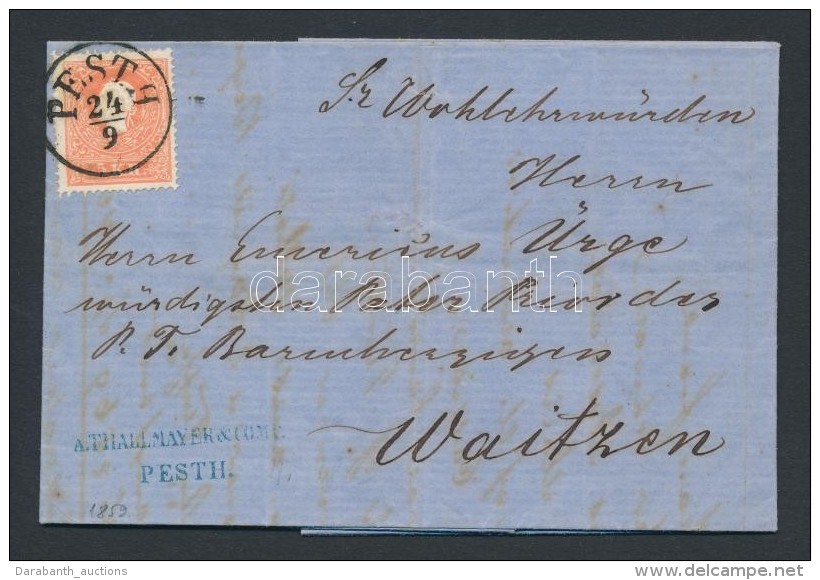 PESTH
24
9
Sr Wohlehrwürden
Herrn
Herrn Emericus Ürge
würdigsten Pater Prior des
P. T. Barmherzigen
Waitzen
A. THALLMAYER & COMP.
PESTH.
1859
darabanth
Darabanth_auctions
delcampe.net